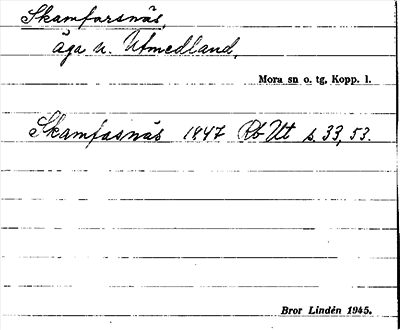 Skamfarsnäs,
äga n. Utmedland,
Mora sn o. tg, Kopp. l.
Skamfasnäs 1847 Rb Ut s. 33, 53.
Bror Lindén 1945.